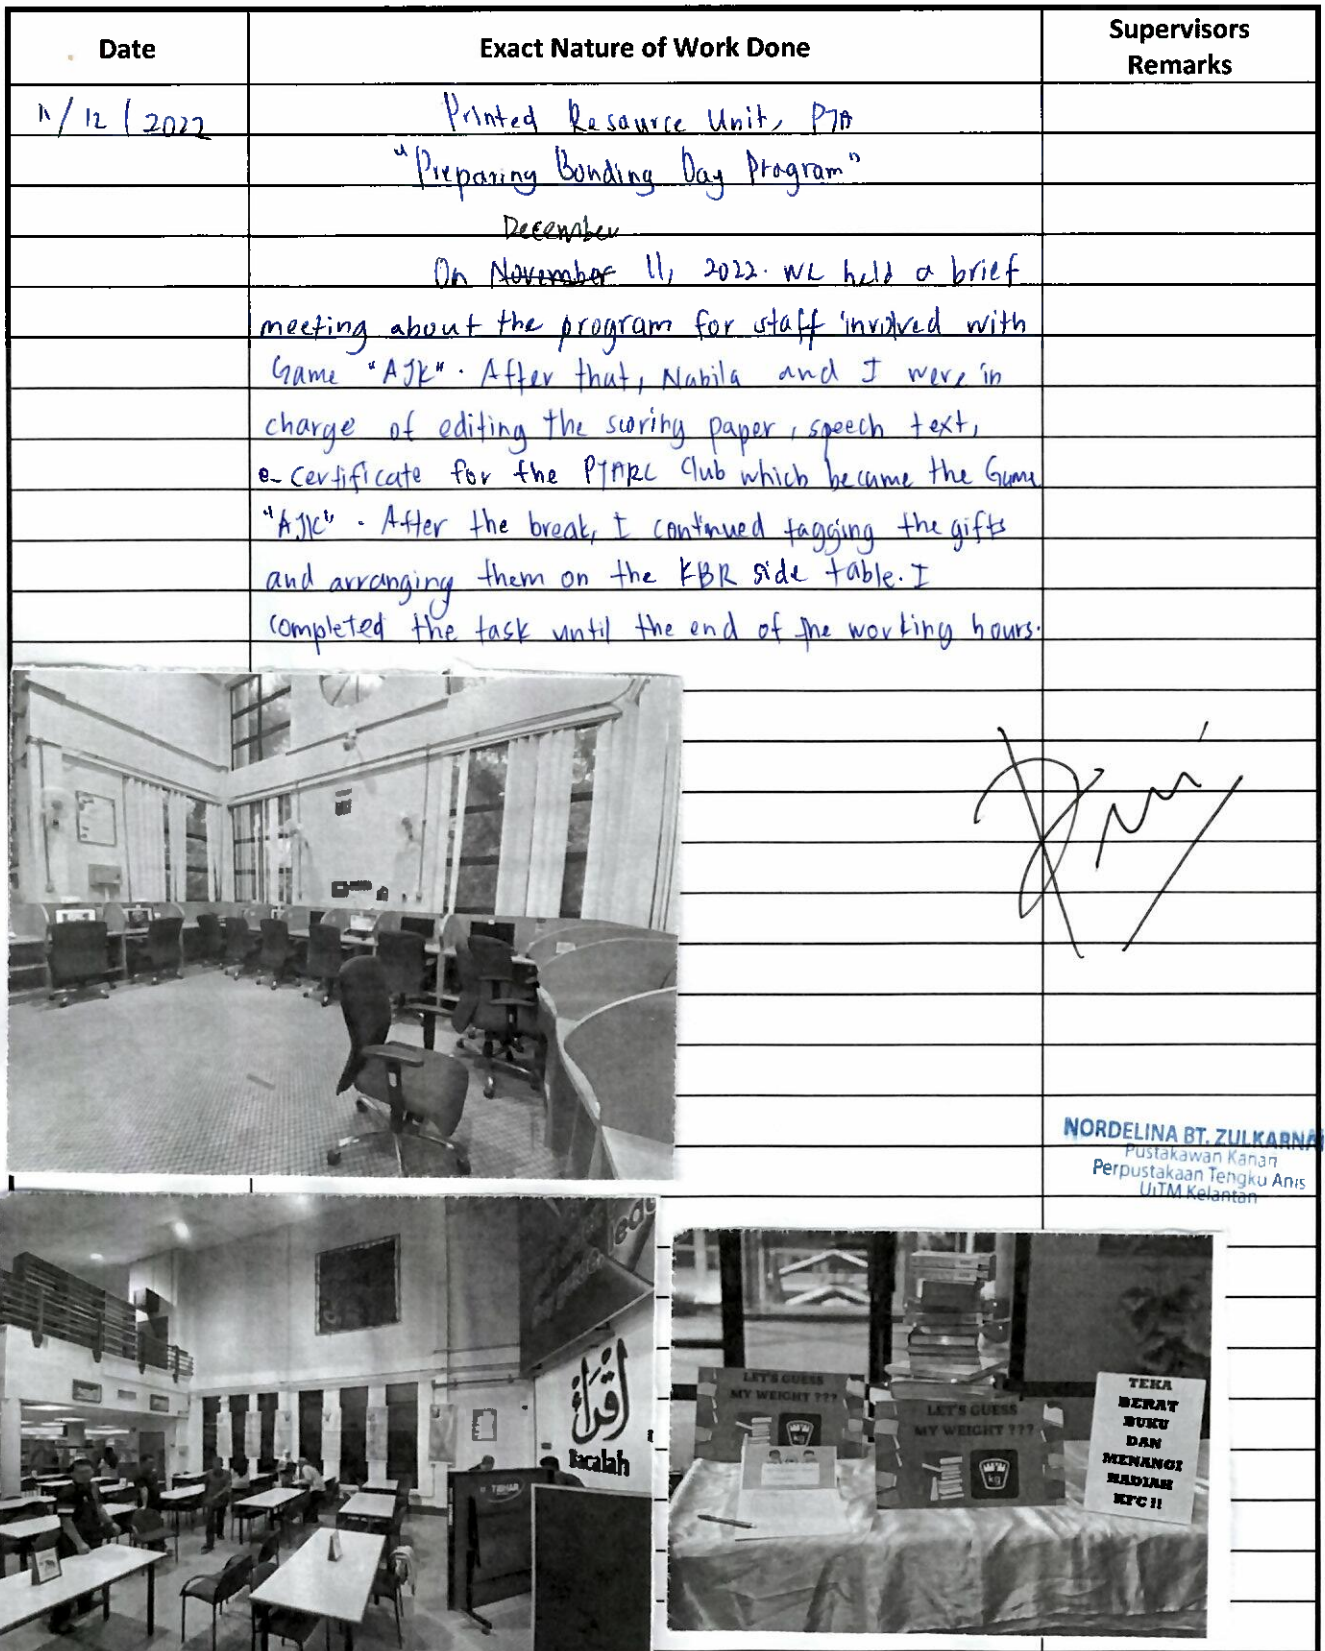 Date
Exact Nature of Work Done
Supervisors
Remarks
11/12/2022
Printed Resource Unit, PTA
"Preparing Bonding Day Program"
December
On November 11, 2022. We held a brief
meeting about the program for staff involved with
Game "AJK". After that, Nabila and I were in
charge of editing the scoring paper, speech text,
e-certificate for the PTARC Club which became the Game
"AJK". After the break, I continued tagging the gifts
and arranging them on the KBR side table. I
completed the task until the end of the working hours.
NORDELINA BT. ZULKARNA
Pustakawan Kanan
Perpustakaan Tengku Anis
UiTM Kelantan
اقرأ
Bacalah
TIBHAR
LET'S GUESS
MY WEIGHT ???
kg
LET'S GUESS
MY WEIGHT ???
kg
TEKA
BERAT
BUKU
DAN
MENANGI
HADIAH
KFC !!